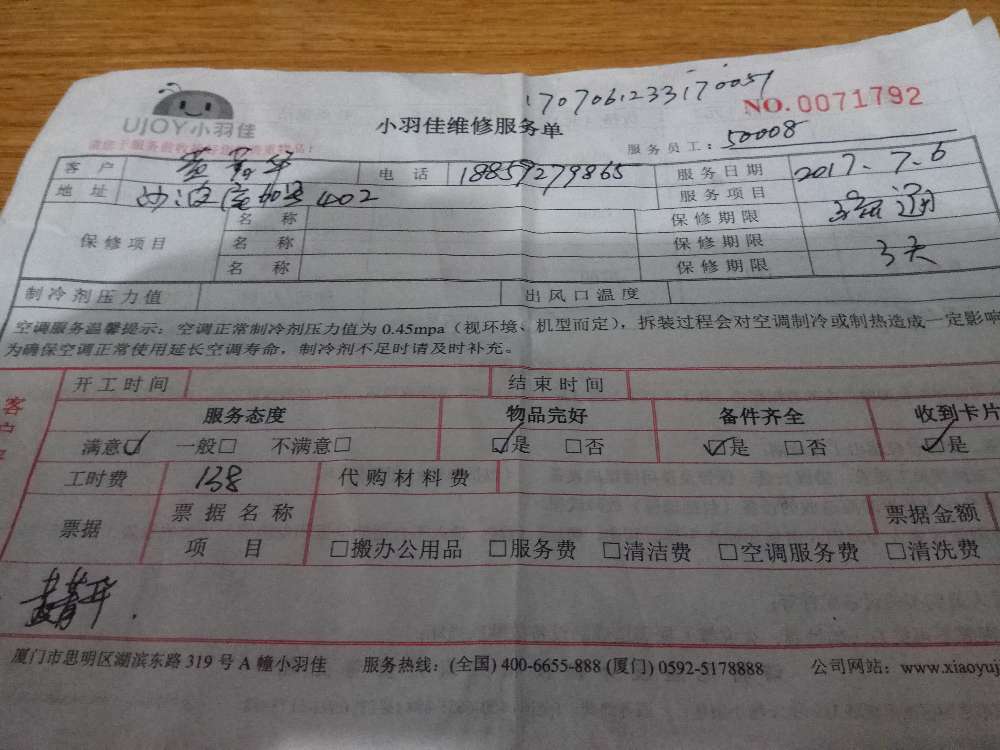 1707061233170057
NO. 0071792
UJOY小羽佳
小羽佳维修服务单
服务员工: 50008
客户 电话 18859279865 服务日期 2017.7.6
地址 402 服务项目 通
保修项目 名称 保修期限
名称 保修期限 3天
名称 保修期限
制冷剂压力值 出风口温度
空调服务温馨提示: 空调正常制冷剂压力值为 0.45mpa (视环境、机型而定), 拆装过程会对空调制冷或制热造成一定影响
为确保空调正常使用延长空调寿命, 制冷剂不足时请及时补充。
客户
开工时间 结束时间
服务态度 物品完好 备件齐全 收到卡片
满意☑ 一般□ 不满意□ ☑是 □否 ☑是 □否 ☑是
工时费 138 代购材料费
票据 票据名称 票据金额
项目 □搬办公用品 □服务费 □清洁费 □空调服务费 □清洗费
厦门市思明区湖滨东路 319 号 A 幢小羽佳 服务热线: (全国) 400-6655-888 (厦门) 0592-5178888 公司网站: www.xiaoyuj